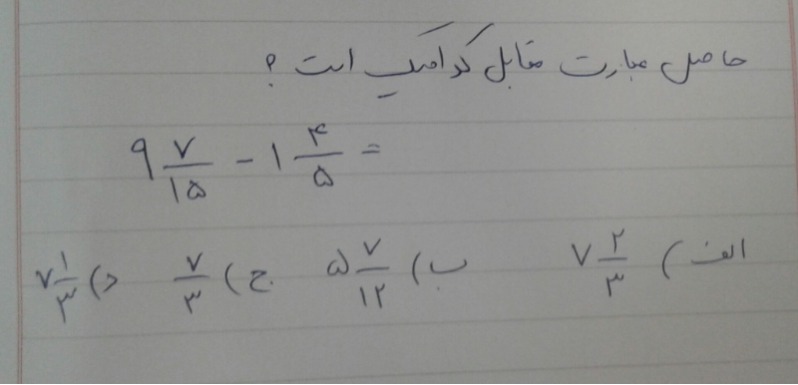 حاصل عبارت مقابل کدامیک است ؟
۹ ۷/۱۵ - ۱ ۴/۵ =
الف) ۷ ۲/۳ ب) ۵ ۷/۱۲ ج) ۷/۳ د) ۷ ۱/۳